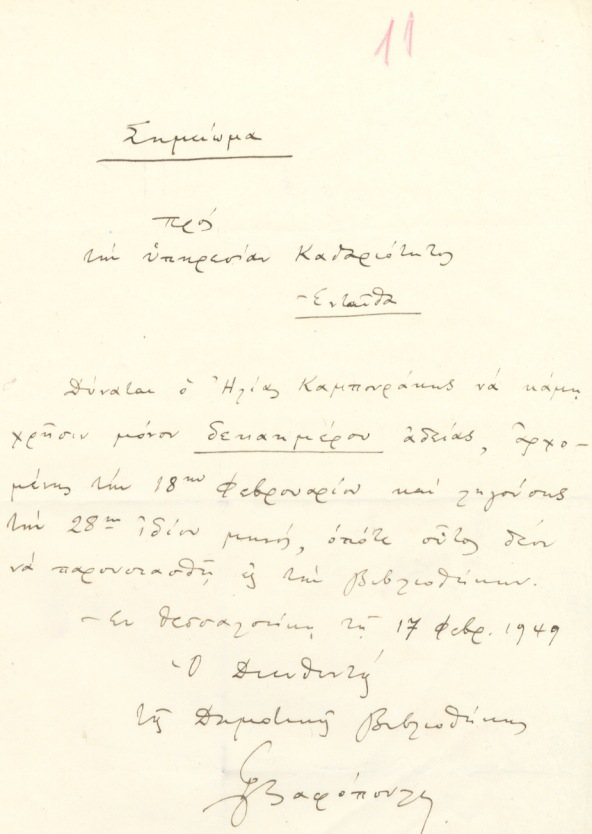 11
Σημείωμα
πρός
τὴν ὑπηρεσίαν Καθαριότητος
Ἐνταῦθα
Δύναται ὁ Ἠλίας Καμπουράκης νὰ κάμῃ
χρῆσιν μόνον δεκαημέρου ἀδείας, ἀρχο-
μένης τὴν 18ην Φεβρουαρίου καὶ ληγούσης
τὴν 28ην ἰδίου μηνός, ὁπότε οὗτος δέον
νὰ παρουσιασθῇ εἰς τὴν Βιβλιοθήκην.
Ἐν Θεσσαλονίκῃ τῇ 17 Φεβρ. 1949
Ὁ Διευθυντής
τῆς Δημοτικῆς Βιβλιοθήκης
Γ Βαφόπουλος